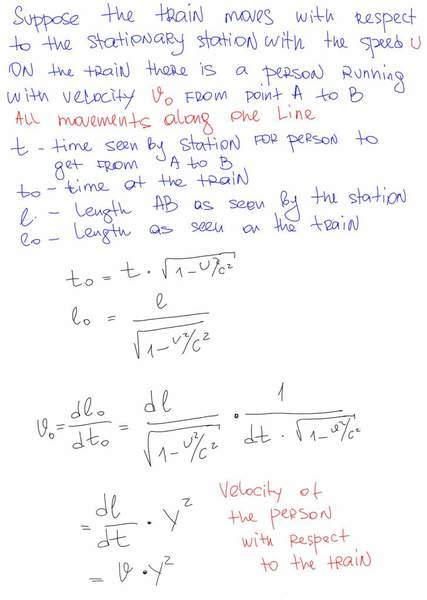 Suppose the train moves with respect
to the stationary station with the speed U
ON the train there is a person running
with velocity v₀ FROM point A to B
All movements along one Line
t - time seen by station FOR person to
get FROM A to B
t₀ - time at the train
l. - Length AB as seen by the station
l₀ - Length as seen on the train
t₀ = t · √(1-U²/c²)
l₀ = l / √(1-U²/c²)
v₀ = dl₀/dt₀ = dl / √(1-U²/c²) · 1 / (dt · √(1-U²/c²))
= dl/dt · γ²
= v · γ²
Velocity of
the person
with respect
to the train